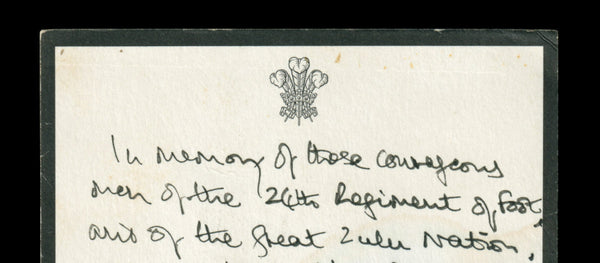 In memory of those courageous
men of the 24th Regiment of Foot,
and of the great Zulu Nation,